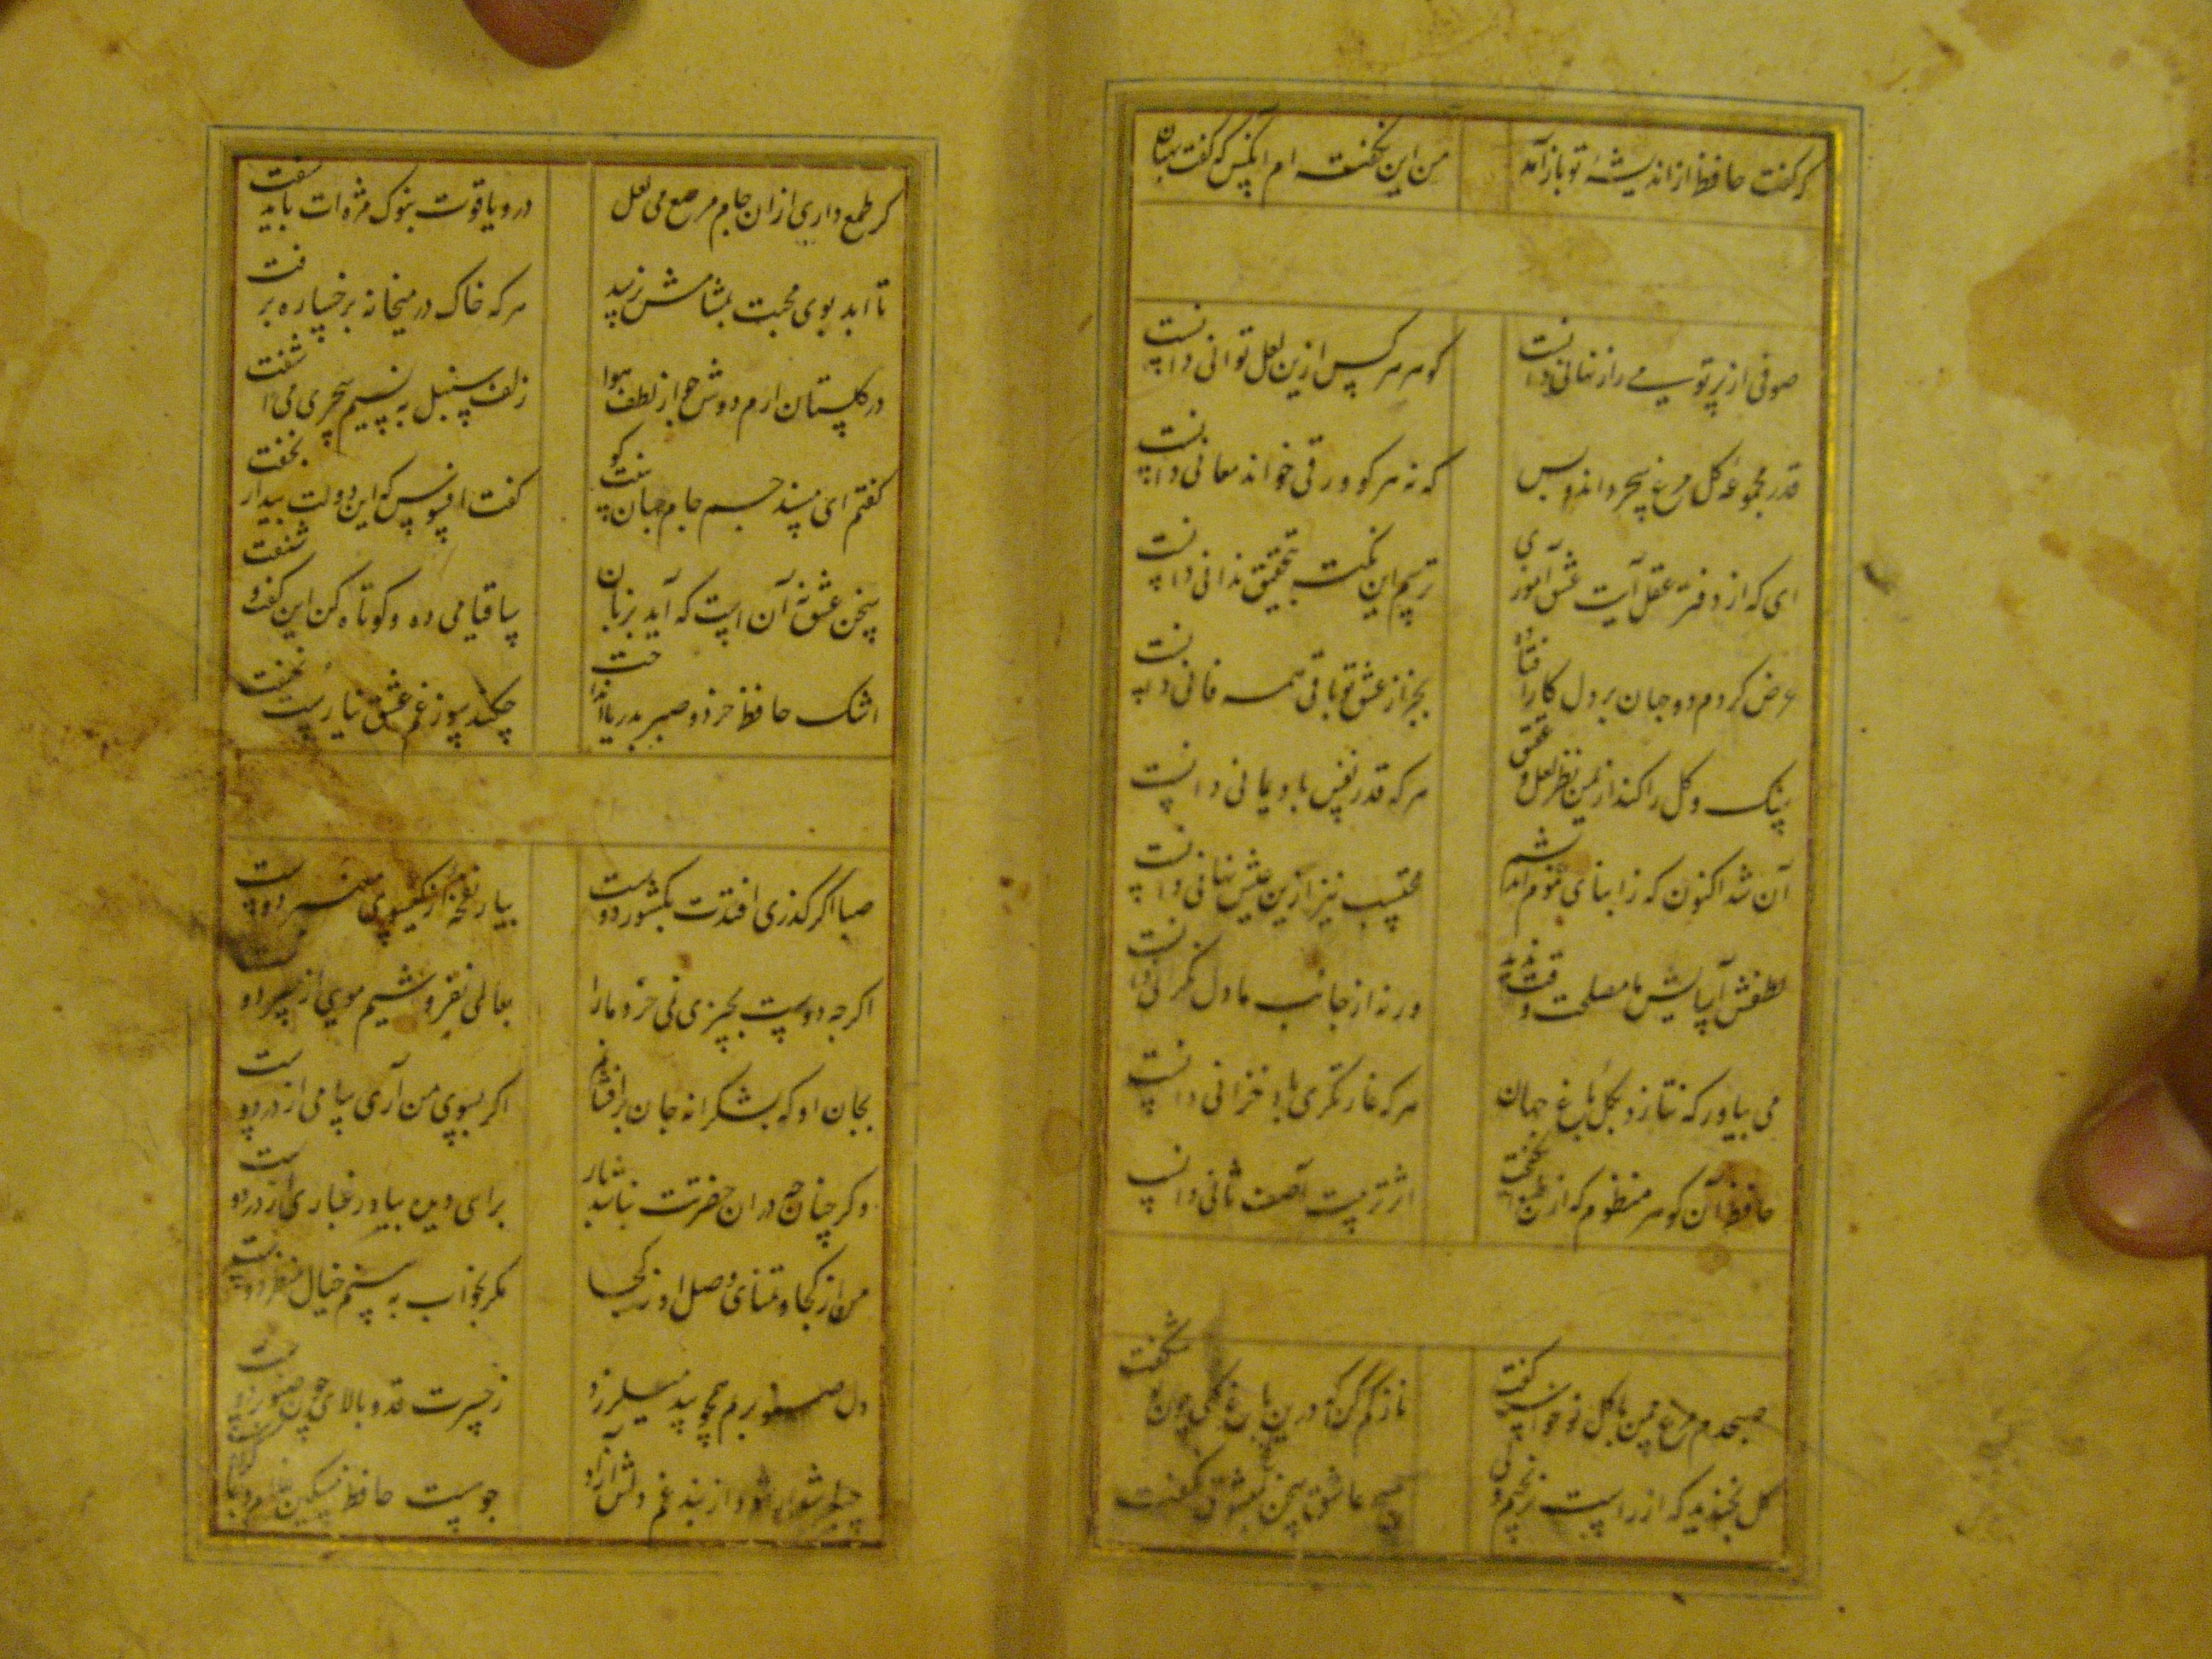 که گفت حافظ از اندیشهٔ تو باز آمد من این نگفته ام انکس که گفت بهتان
صوفی از پرتو می راز نهانی دانست کوهر هر کس ازین لعل توانی دانست
قدر مجموعهٔ کل مرغ سحر داند و بس که نه هر کو ورقی خواند معانی دانست
ای که از دفتر عقل آیت عشق آموزی ترسم این نکته بتحقیق ندانی دانست
عرض کردم دو جهان بر دل کار افتاده بجز از عشق تو باقی همه فانی دانست
سنک و کل را کند از یمن نظر لعل و عقیق هر که قدر نفس باد یمانی دانست
آن شد اکنون که ز ابنای عوام اندیشم محتسب نیز ازین عیش نهانی دانست
لطفش آسایش ما مصلحت وقت ندید ور نه از جانب ما دل نکرانی دانست
می بیاور که ننازد بکل باغ جهان هر که غارتکری باد خزانی دانست
حافظ آن کوهر منظوم که از طبع انکیخت اثر تربیت آصف ثانی دانست
صبحدم مرغ چمن با کل نو خواسته کفت ناز کم کن که درین باغ بسی چون تو شکفت
کل بخندید که از راست نرنجیم ولی هیچ عاشق سخن بمعشوق نکفت
کر طمع داری ازان جام مرصع می لعل در و یاقوت بنوک مژه ات باید سفت
تا ابد بوی محبت بمشامش نرسد هر که خاک در میخانه برخساره نرفت
در کلستان ارم دوش چو از لطف هوا زلف سنبل به نسیم سحری می آشفت
کفتم ای مسند جم جام جهان بینت کو کفت افسوس که این دولت بیدار بخفت
سخن عشق نه آن است که آید بزبان ساقیا می ده و کوتاه کن این کفت و شنفت
اشک حافظ خرد و صبر بدریا انداخت چکند سوز غم عشق نیارست نهفت
صبا اکر کذری افتدت بکشور دوست بیار نفحهٔ از کیسوی معنبر دوست
اکرچه دوست بچیزی نمی خرد ما را بعالمی نفروشیم مویی از سر دوست
بجان او که بشکرانه جان برافشانم اکر بسوی من آری پیامی از در دوست
وکر چنانچه دران حضرتت نباشد بار برای دیده بیاور غباری از در دوست
من از کجا و تمنای وصل او ز کجا مکر بخواب به بینم خیال منظر دوست
دل صنوبریم همچو بید میلرزد ز حسرت قد و بالای چون صنوبر دوست
چه شود از بند غم دلش آزاد چو هست حافظ مسکین غلام و چاکر دوست